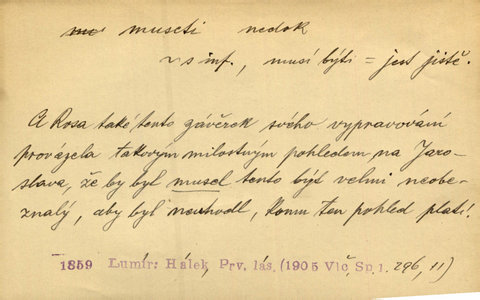 museti nedok
v s inf., musí býti = jest jistě.
A Rosa také tento závěrek svého vypravování
provázela takovým milostným pohledem na Jaro-
slava, že by byl musel tento být velmi neobe-
znalý, aby byl neuhodl, komu ten pohled platí.
1859 Lumír: Hálek, Prv. lás. (1905 Vlč, Sp. 1. 296, 11)